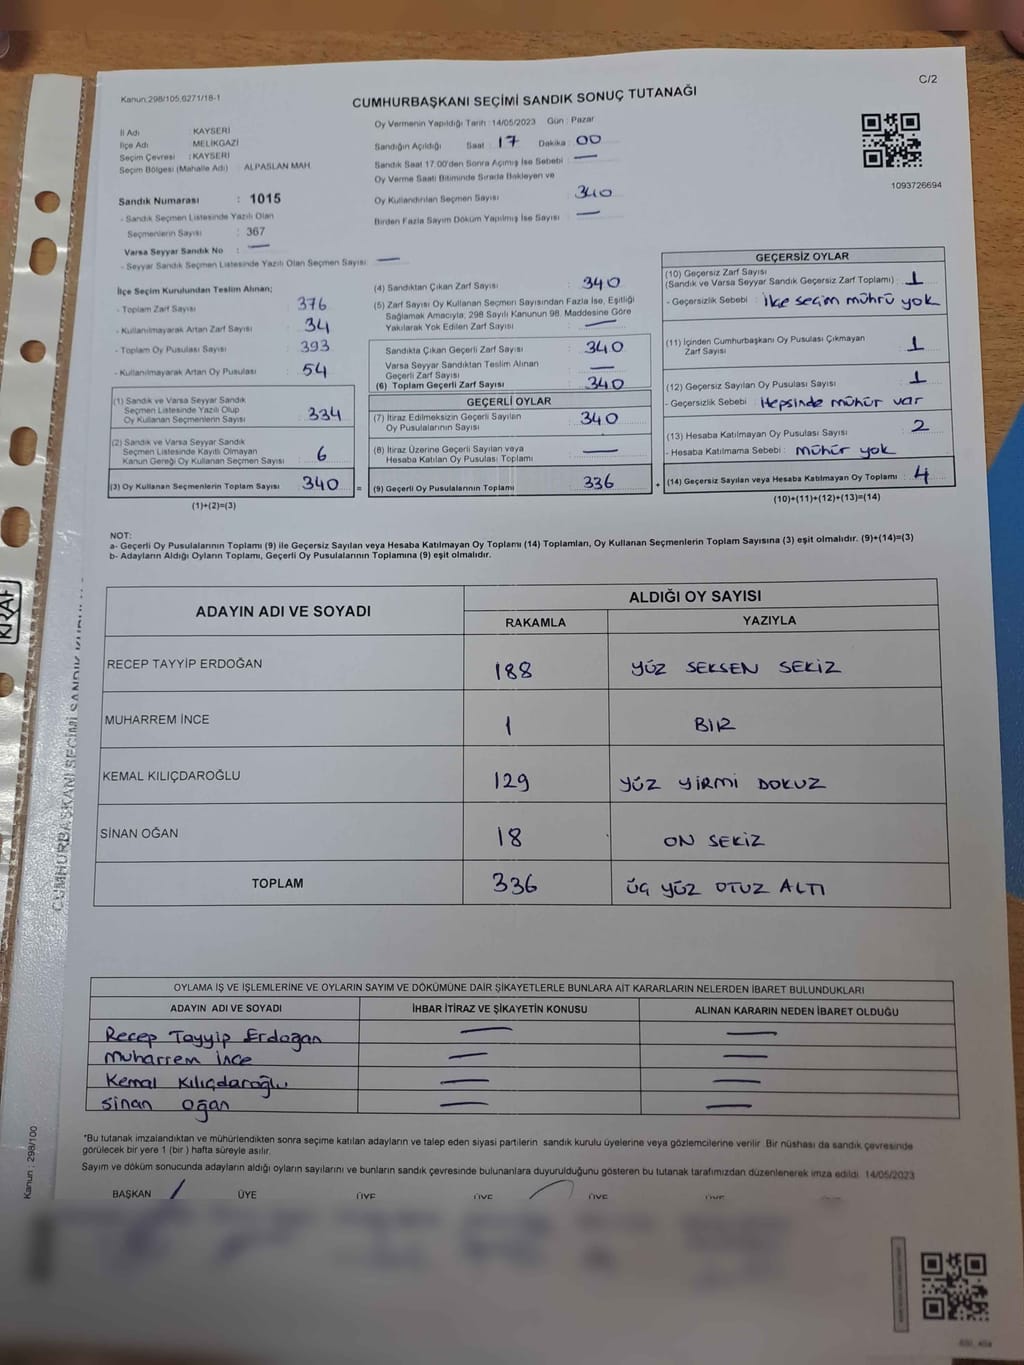 C/2
Kanun:298/105,6271/18-1
CUMHURBAŞKANI SEÇİMİ SANDIK SONUÇ TUTANAĞI
İl Adı : KAYSERİ
İlçe Adı : MELİKGAZİ
Seçim Çevresi : KAYSERİ
Seçim Bölgesi (Mahalle Adı) : ALPASLAN MAH.
Sandık Numarası : 1015
- Sandık Seçmen Listesinde Yazılı Olan
Seçmenlerin Sayısı : 367
Varsa Seyyar Sandık No : —
- Seyyar Sandık Seçmen Listesinde Yazılı Olan Seçmen Sayısı: —
Oy Vermenin Yapıldığı Tarih : 14/05/2023 Gün : Pazar
Sandığın Açıldığı Saat : 17 Dakika : 00
Sandık Saat 17.00'den Sonra Açılmış İse Sebebi : —
Oy Verme Saati Bitiminde Sırada Bekleyen ve
Oy Kullandırılan Seçmen Sayısı : 340
Birden Fazla Sayım Döküm Yapılmış İse Sayısı : —
1093726694
İlçe Seçim Kurulundan Teslim Alınan;
- Toplam Zarf Sayısı : 376
- Kullanılmayarak Artan Zarf Sayısı : 34
- Toplam Oy Pusulası Sayısı : 393
- Kullanılmayarak Artan Oy Pusulası : 54
(1) Sandık ve Varsa Seyyar Sandık
Seçmen Listesinde Yazılı Olup
Oy Kullanan Seçmenlerin Sayısı : 334
(2) Sandık ve Varsa Seyyar Sandık
Seçmen Listesinde Kayıtlı Olmayan
Kanun Gereği Oy Kullanan Seçmen Sayısı : 6
(3) Oy Kullanan Seçmenlerin Toplam Sayısı : 340
(1)+(2)=(3)
(4) Sandıktan Çıkan Zarf Sayısı : 340
(5) Zarf Sayısı Oy Kullanan Seçmen Sayısından Fazla İse, Eşitliği
Sağlamak Amacıyla, 298 Sayılı Kanunun 98. Maddesine Göre
Yakılarak Yok Edilen Zarf Sayısı : —
Sandıkta Çıkan Geçerli Zarf Sayısı : 340
Varsa Seyyar Sandıktan Teslim Alınan
Geçerli Zarf Sayısı : —
(6) Toplam Geçerli Zarf Sayısı : 340
GEÇERLİ OYLAR
(7) İtiraz Edilmeksizin Geçerli Sayılan
Oy Pusulalarının Sayısı : 340
(8) İtiraz Üzerine Geçerli Sayılan veya
Hesaba Katılan Oy Pusulası Toplamı : —
= (9) Geçerli Oy Pusulalarının Toplamı : 336
GEÇERSİZ OYLAR
(10) Geçersiz Zarf Sayısı
(Sandık ve Varsa Seyyar Sandık Geçersiz Zarf Toplamı) : 1
- Geçersizlik Sebebi : İlçe seçim mührü yok
(11) İçinden Cumhurbaşkanı Oy Pusulası Çıkmayan
Zarf Sayısı : 1
(12) Geçersiz Sayılan Oy Pusulası Sayısı : 1
- Geçersizlik Sebebi : Hepsinde mühür var
(13) Hesaba Katılmayan Oy Pusulası Sayısı : 2
- Hesaba Katılmama Sebebi : mühür yok
+ (14) Geçersiz Sayılan veya Hesaba Katılmayan Oy Toplamı : 4
(10)+(11)+(12)+(13)=(14)
NOT:
a- Geçerli Oy Pusulalarının Toplamı (9) ile Geçersiz Sayılan veya Hesaba Katılmayan Oy Toplamı (14) Toplamları, Oy Kullanan Seçmenlerin Toplam Sayısına (3) eşit olmalıdır. (9)+(14)=(3)
b- Adayların Aldığı Oyların Toplamı, Geçerli Oy Pusulalarının Toplamına (9) eşit olmalıdır.
ADAYIN ADI VE SOYADI ALDIĞI OY SAYISI
RAKAMLA YAZIYLA
RECEP TAYYİP ERDOĞAN 188 YÜZ SEKSEN SEKİZ
MUHARREM İNCE 1 BİR
KEMAL KILIÇDAROĞLU 129 YÜZ YİRMİ DOKUZ
SİNAN OĞAN 18 ON SEKİZ
TOPLAM 336 ÜÇ YÜZ OTUZ ALTI
OYLAMA İŞ VE İŞLEMLERİNE VE OYLARIN SAYIM VE DÖKÜMÜNE DAİR ŞİKAYETLERLE BUNLARA AİT KARARLARIN NELERDEN İBARET BULUNDUKLARI
ADAYIN ADI VE SOYADI İHBAR İTİRAZ VE ŞİKAYETİN KONUSU ALINAN KARARIN NEDEN İBARET OLDUĞU
Recep Tayyip Erdoğan — —
Muharrem İnce — —
Kemal Kılıçdaroğlu — —
Sinan Oğan — —
*Bu tutanak imzalandıktan ve mühürlendikten sonra seçime katılan adayların ve talep eden siyasi partilerin sandık kurulu üyelerine veya gözlemcilerine verilir. Bir nüshası da sandık çevresinde
görülecek bir yere 1 (bir ) hafta süreyle asılır.
Sayım ve döküm sonucunda adayların aldığı oyların sayılarını ve bunların sandık çevresinde bulunanlara duyurulduğunu gösteren bu tutanak tarafımızdan düzenlenerek imza edildi. 14/05/2023
BAŞKAN ÜYE ÜYE ÜYE ÜYE ÜYE
Kanun : 298/100
KRAF